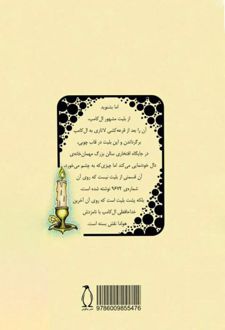 اما بشنوید
از بلیت مشهور ال‌کامپ.
آن را بعد از قرعه‌کشی لاتاری به ال‌کامپ
برگرداندن و این بلیت در قاب چوبی،
در جایگاه افتخاری سالن بزرگ مهمان‌خانه‌ی
دال خودنمایی می‌کند اما چیزی‌که به چشم می‌خورد،
آن قسمتی از بلیت نیست که روی آن
شماره‌ی ۹۶۷۲ نوشته شده است.
بلکه پشت بلیت است که روی آن آخرین
خداحافظی ال‌کامپ با نامزدش
هولدا نقش بسته است.
9786009855476